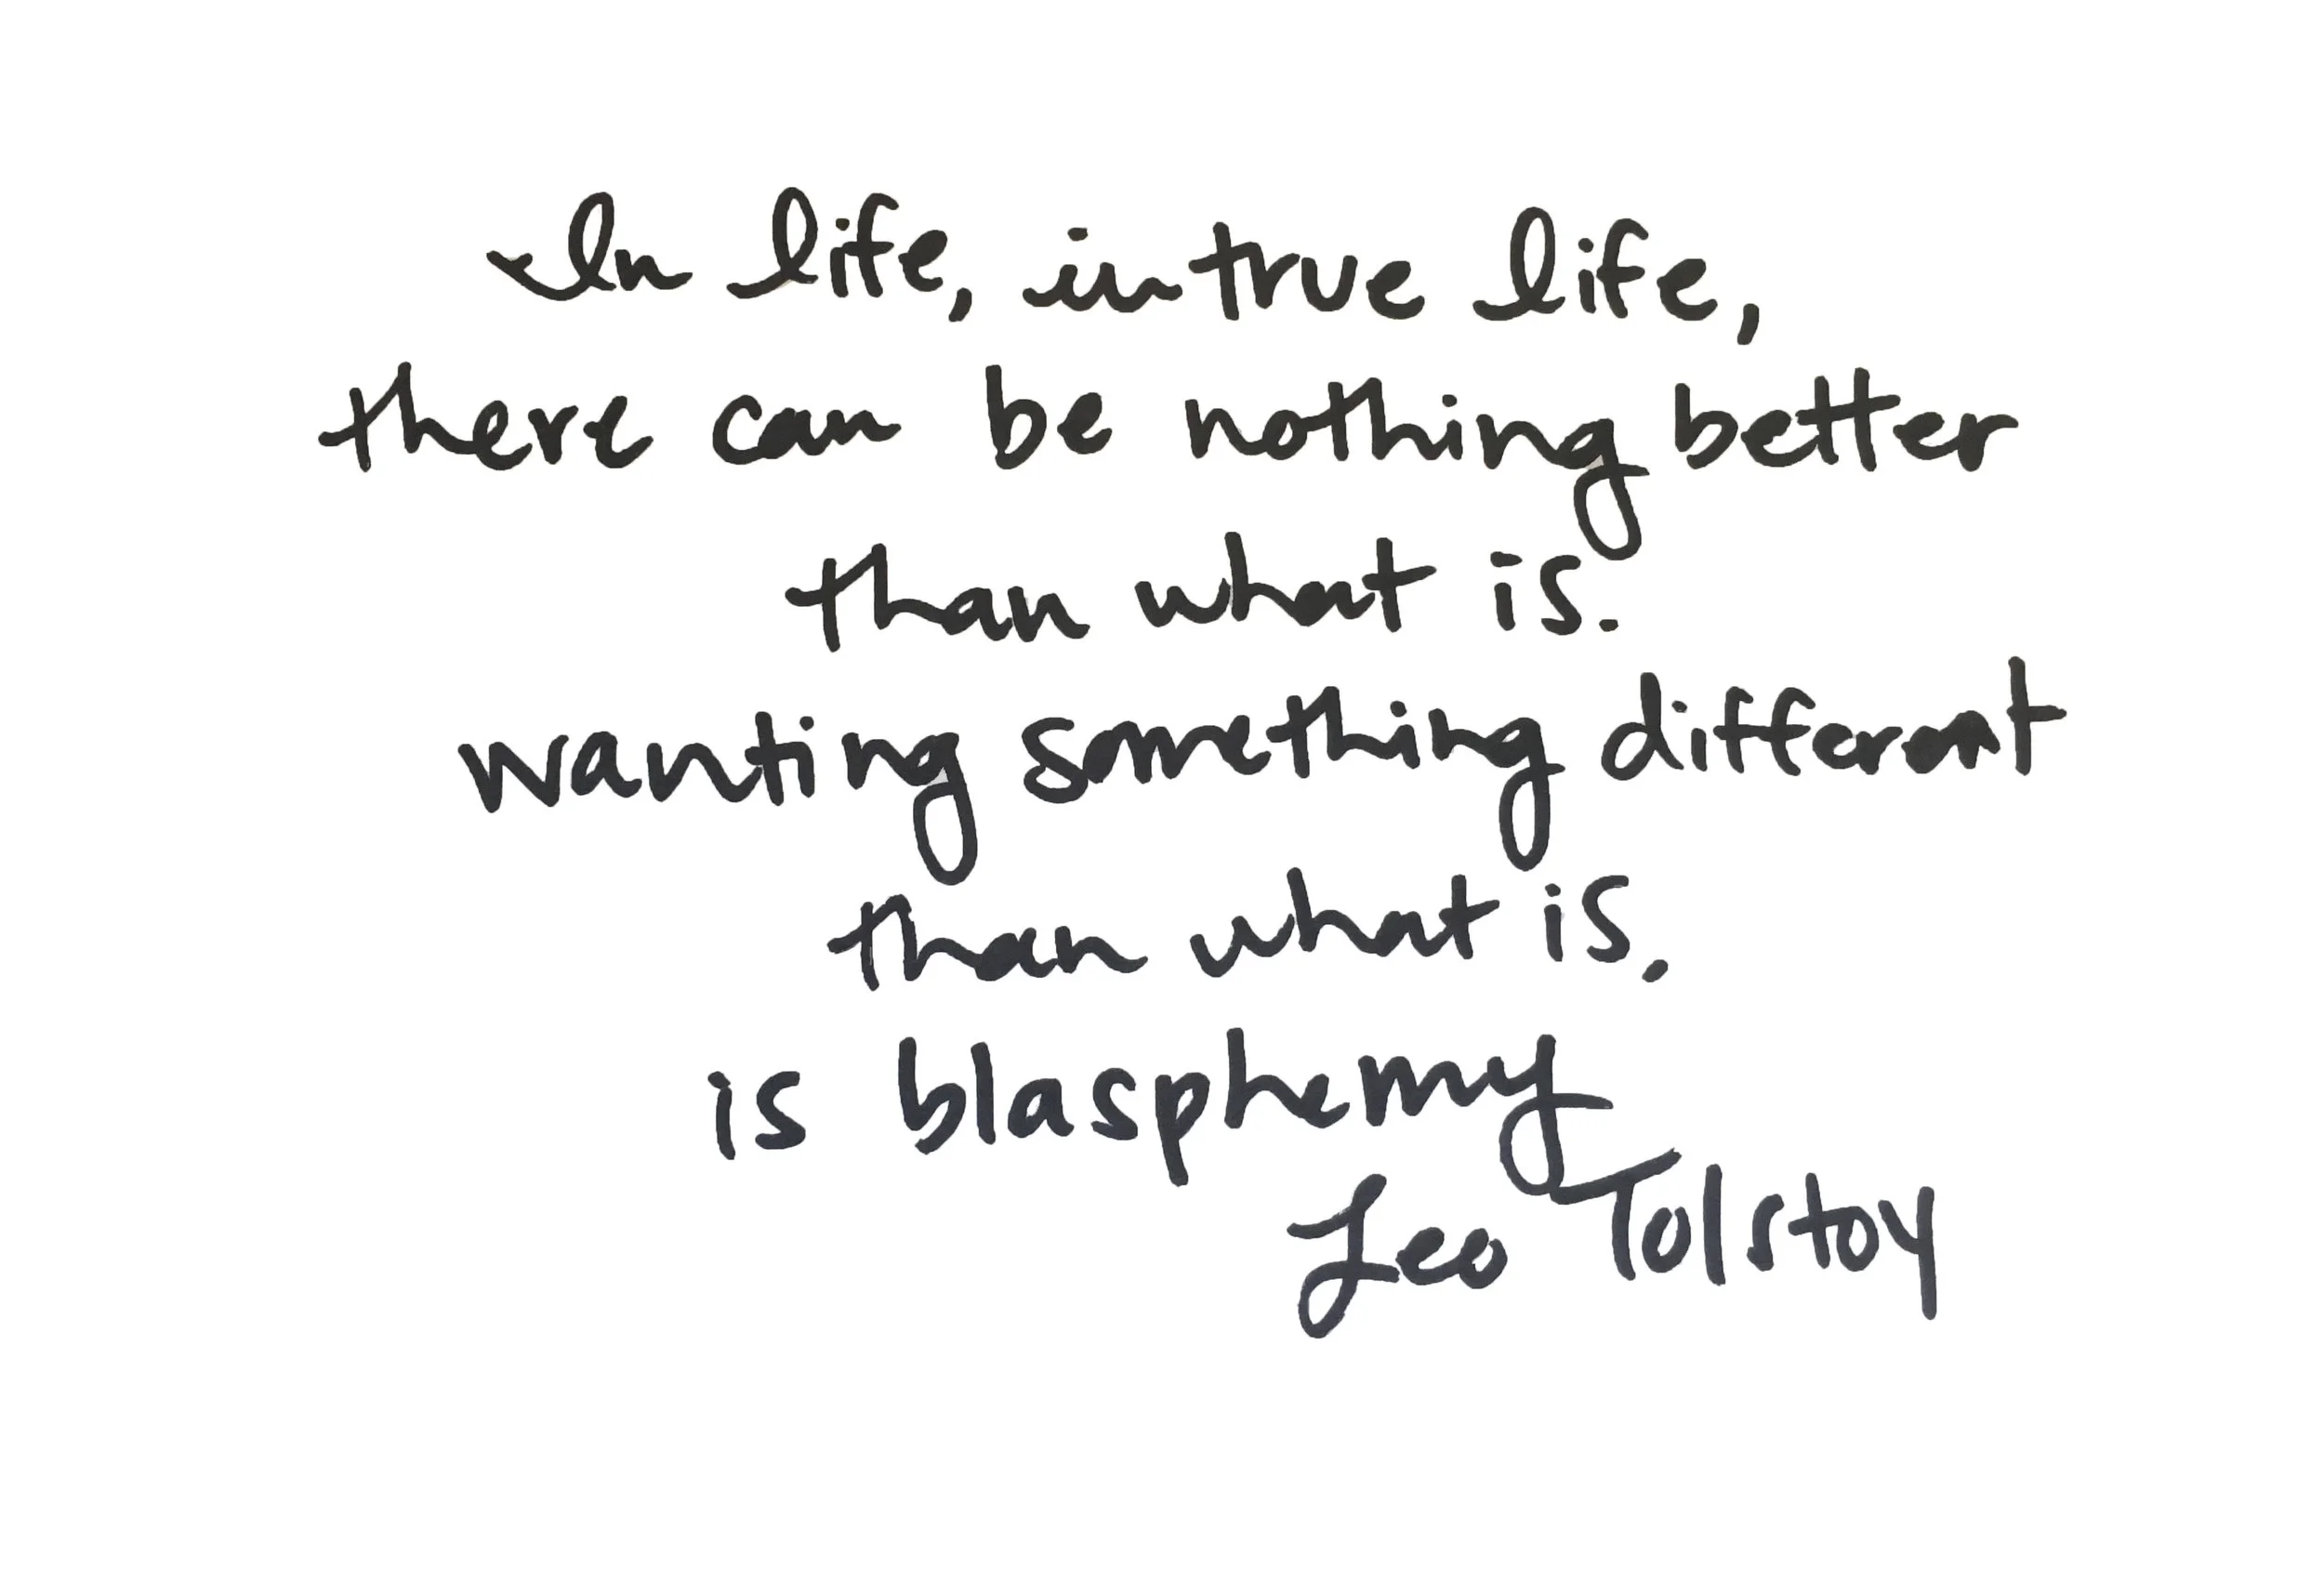 In life, in true life,
there can be nothing better
than what is.
wanting something different
than what is,
is blasphemy
Leo Tolstoy